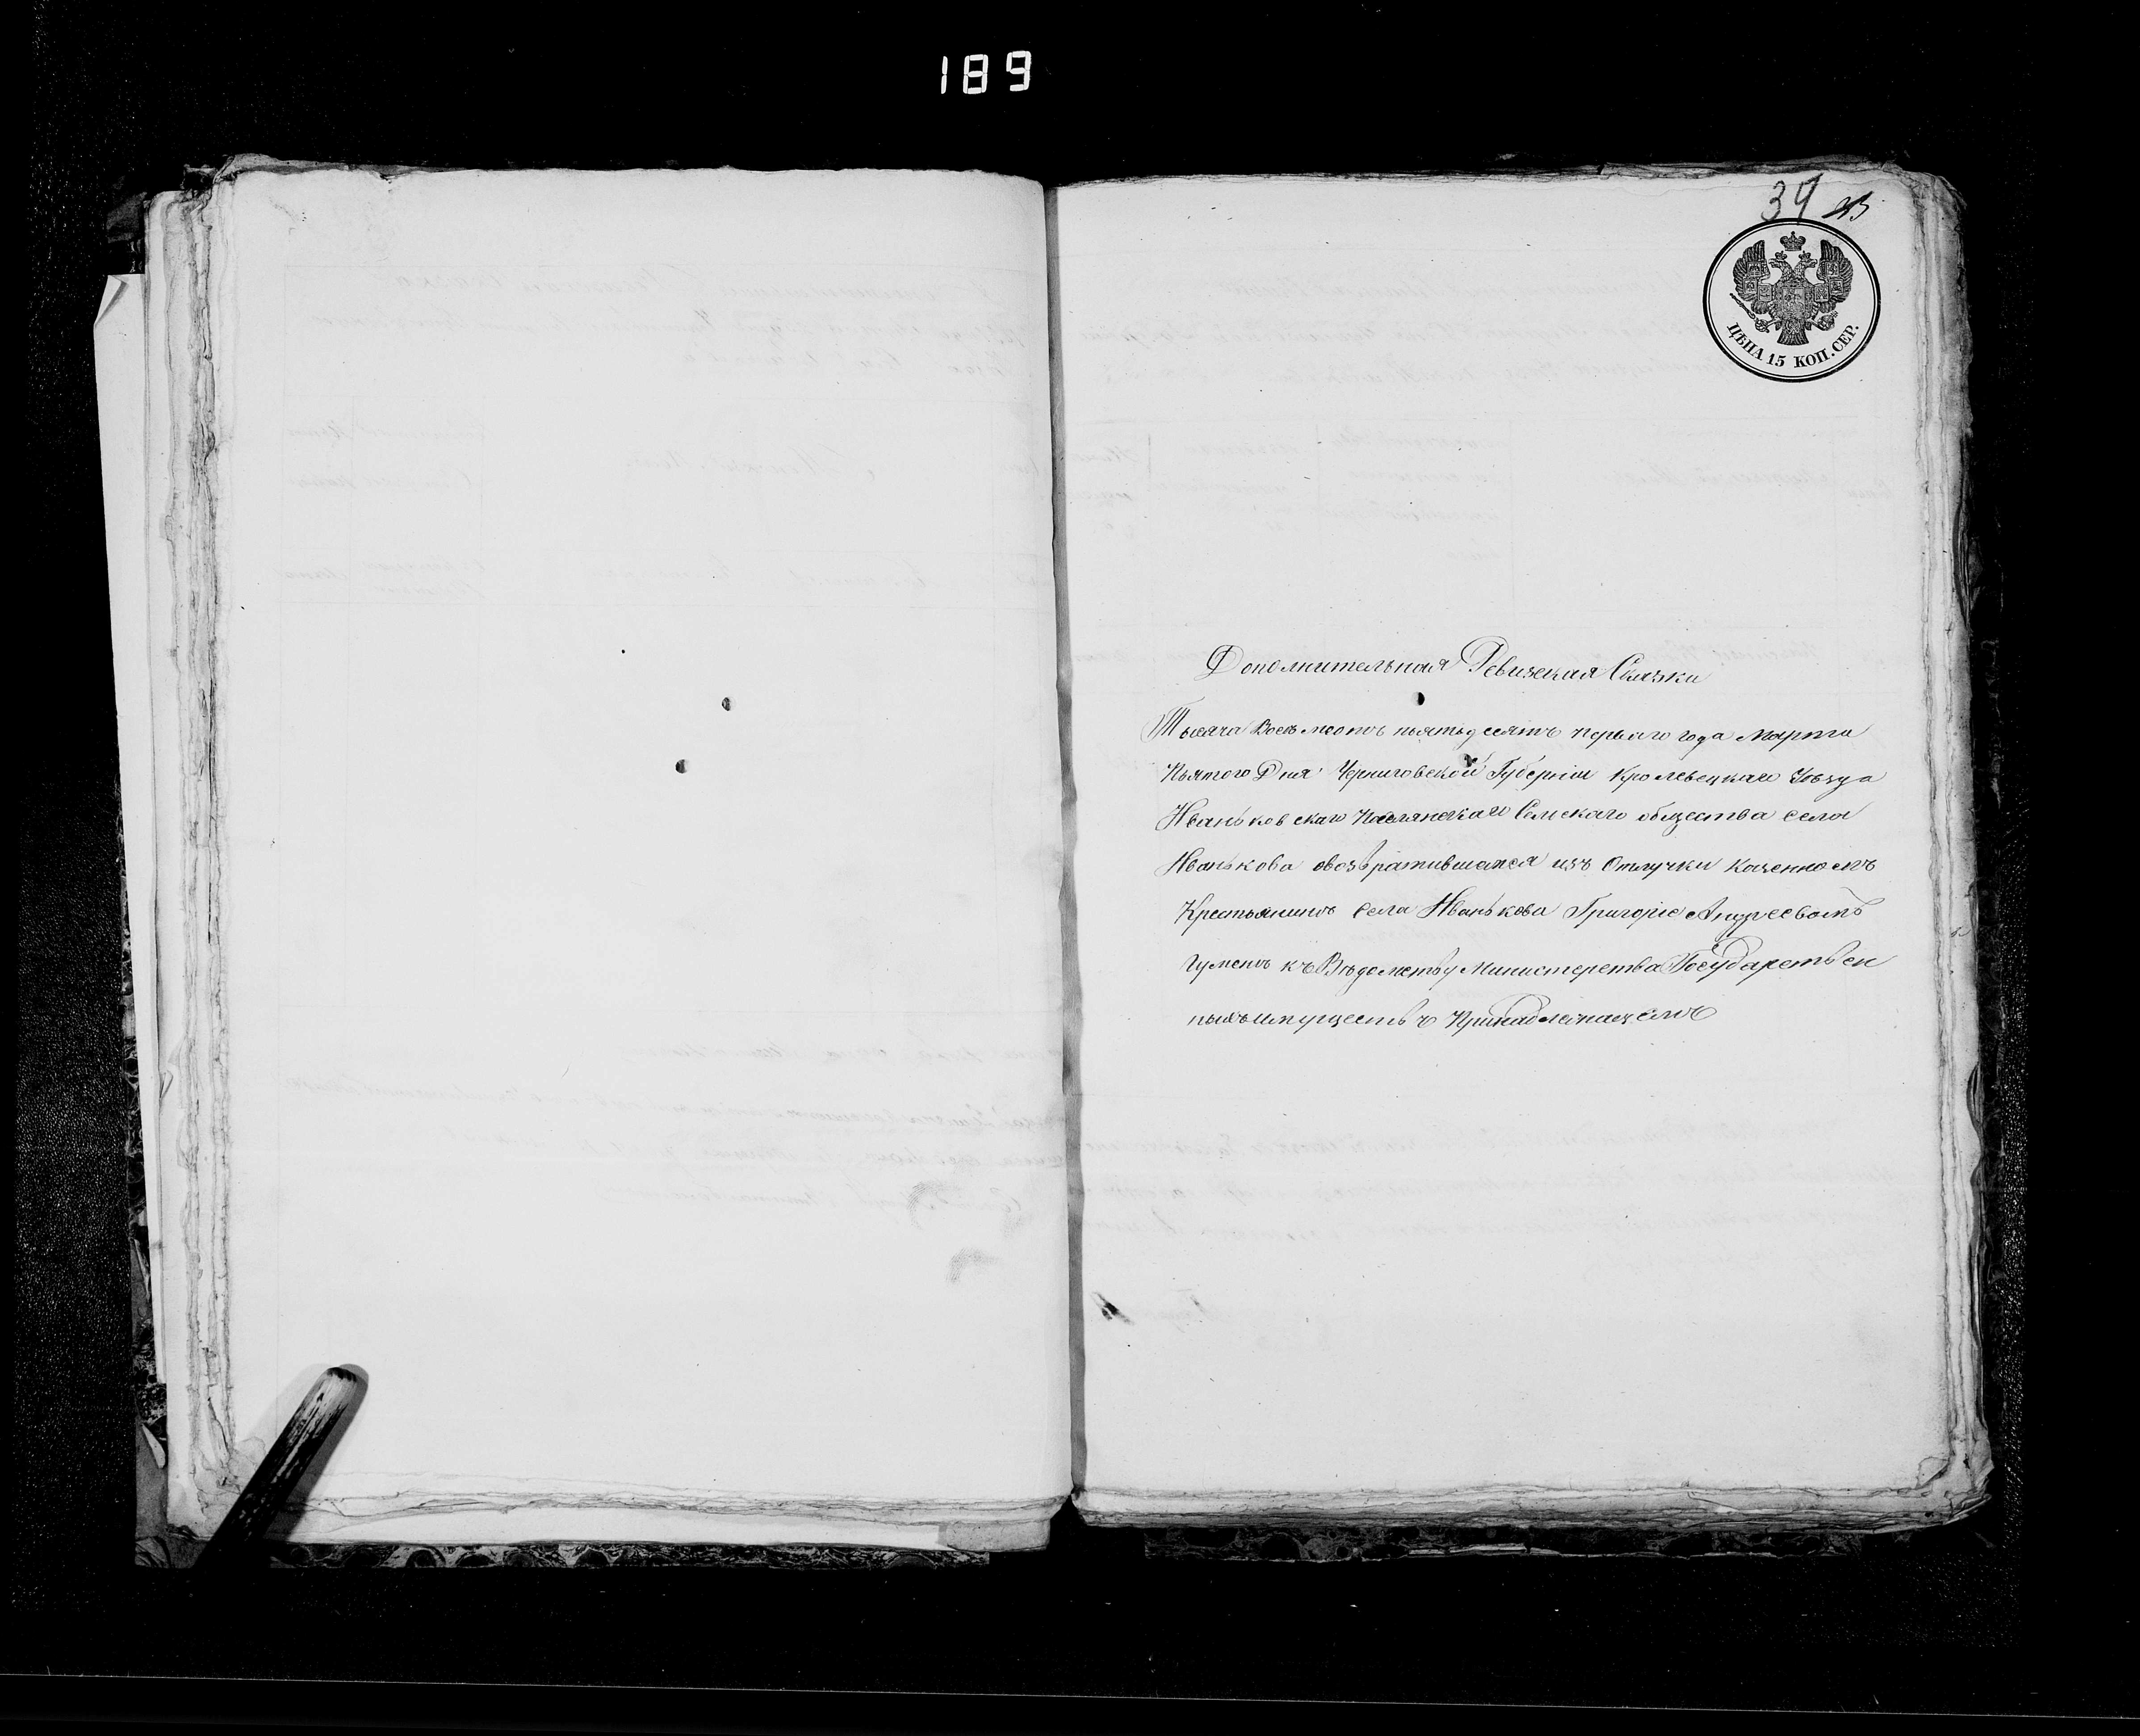 189
39
ЦѢНА 15 КОП. СЕР.
Дополнительная Ревизская Сказка
Тысяча Восемсотъ пьятьдесятъ перваго года Марта
Пьятого Дня Черниговской Губерніи Кролевецкаго Уѣзда
Иваньковскаго Сельскаго общества села
Иванькова овозвратившемся изъ Отлучки Казенномъ
Крестьянинѣ села Иванькова Григоріе Андреевомъ
Гуменъ къ Вѣдомству Министерства Государствен
ныхъ имуществъ Принадлежащемъ